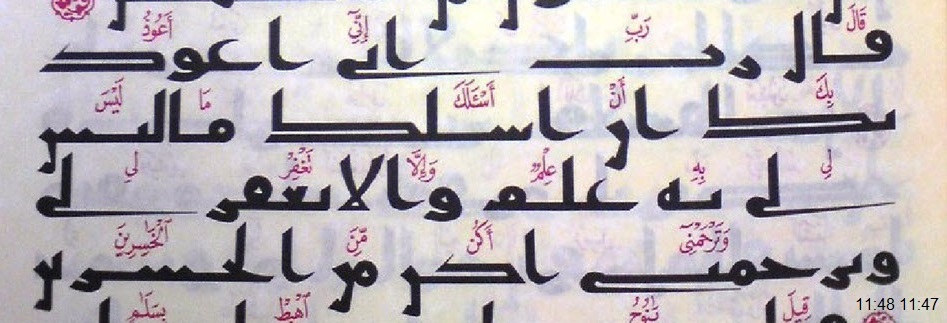 قَالَ رَبِّ إِنِّيٓ أَعُوذُ
قال رب انى اعود
بِكَ أَنْ أَسْـَٔلَكَ مَا لَيْسَ
بك ان اسلك ما ليس
لِي بِهِ عِلْمٌ وَإِلَّا تَغْفِرْ لِي
لى به علم والا تغفر لى
وَتَرْحَمْنِيٓ أَكُن مِّنَ ٱلْخَٰسِرِينَ
وترحمنى اكن من الخسرين
قِيلَ يَٰنُوحُ ٱهْبِطْ بِسَلَٰمٖ
11:48 11:47